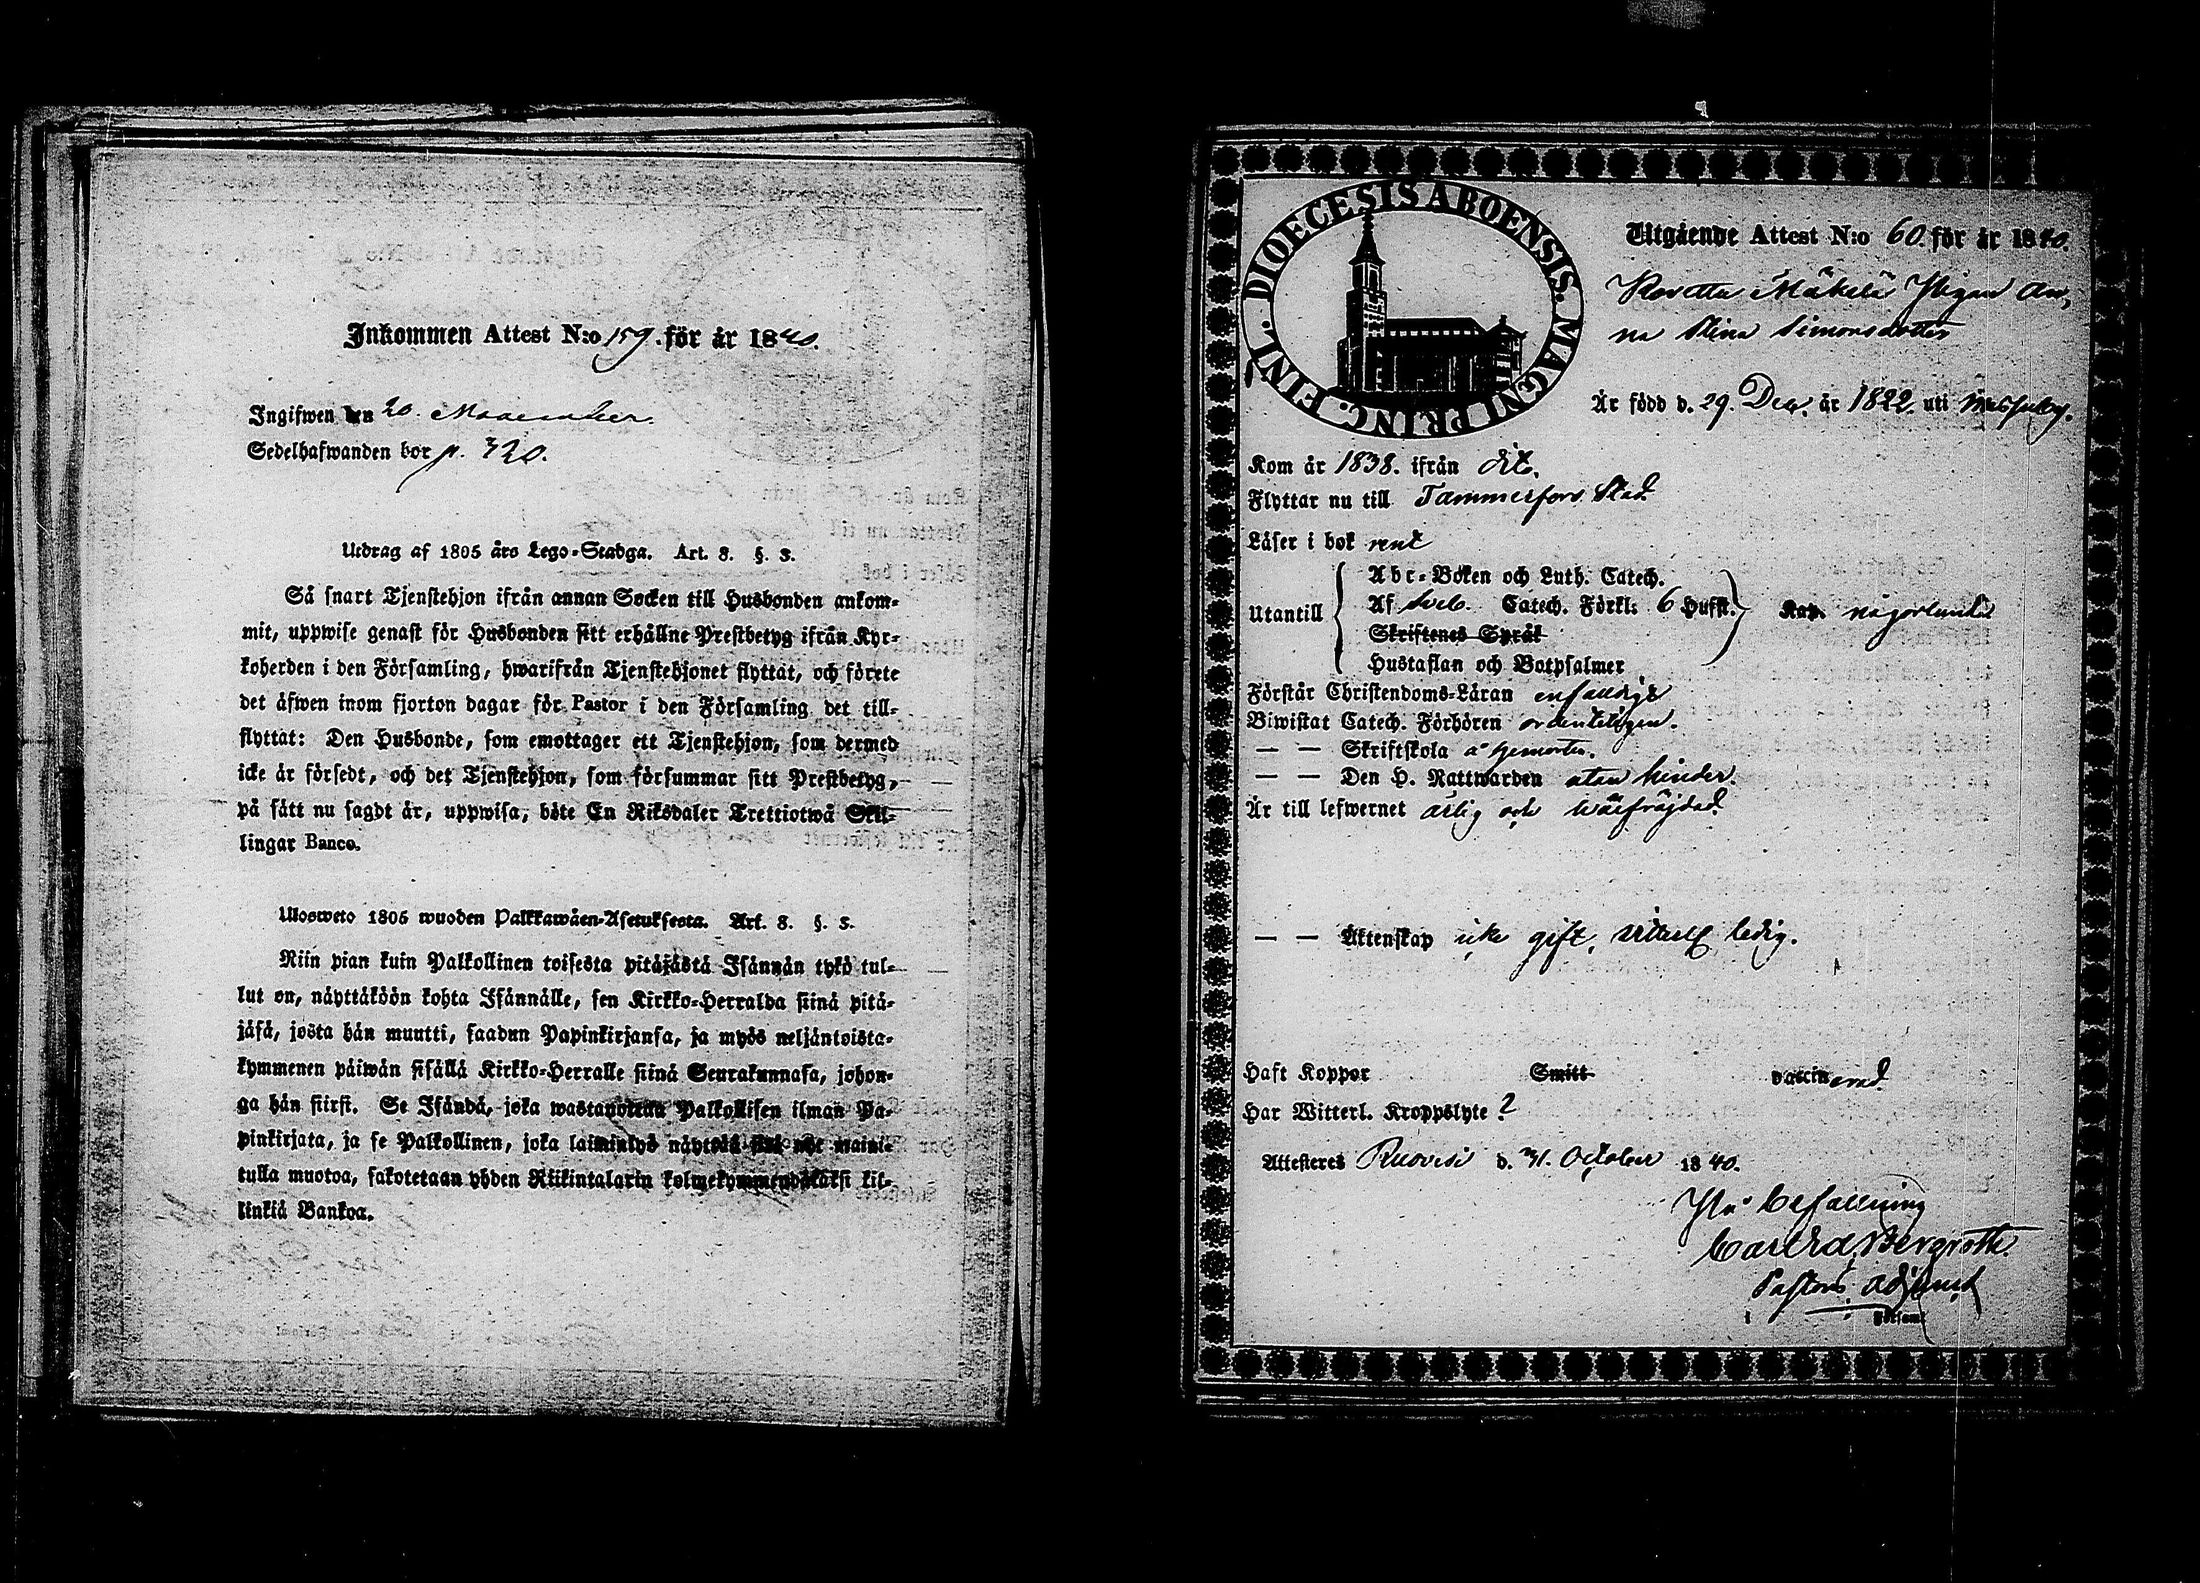 Inkommen Attest N:o 159. för år 1840.
Ingifwen den 20. November.
Sedelhafwanden bor p. 320.
Utdrag af 1805 års Lego-Stadga. Art. 8. §. 3.
Så snart Tjenstehjon ifrån annan Socken till Husbonden ankom-
mit, uppwise genast för Husbonden sitt erhållne Prestbetyg ifrån Kyr-
koherden i den Församling, hwarifrån Tjenstehjonet flyttat, och förete
det äfwen inom fjorton dagar för Pastor i den Församling det till-
flyttat: Den Husbonde, som emottager ett Tjenstehjon, som dermed
icke är försedt, och det Tjenstehjon, som försummar sitt Prestbetyg,
på sätt nu sagdt är, uppwisa, böte En Riksdaler Trettiotwå Skil-
lingar Banco.
Ulosweto 1805 wuoden Palkkawäen-Asetuksesta. Art. 8. §. 3.
Niin pian kuin Palkollinen toisesta pitäjästä Isännän tykö tul-
lut on, näyttäköön kohta Isännälle, sen Kirkko-Herralda siinä pitä-
jäsä, josta hän muutti, saadun Papinkirjansa, ja myös neljäntoista-
kymmenen päiwän sisällä Kirkko-Herralle siinä Seurakunnasa, johon-
ga hän siirsi. Se Isändä, joka wastanottaa Palkollisen ilman Pa-
pinkirjata, ja se Palkollinen, joka laiminlyö näyttää sitä nyt maini-
tulla muotoa, sakotetaan yhden Riikintalarin kolmekymmendäkaksi kil-
linkiä Bankoa.
DIOECESIS ABOENSIS. MAGNI PRINC. FINL.
Utgående Attest N:o 60. för år 1840.
Mäkelä Pigan An-
na Stina Simonsdotter
Är född d. 29. Dec. år 1822. uti Messuby.
Kom år 1838. ifrån dit.
Flyttar nu till Tammerfors Stad
Läser i bok rent
Utantill
Abc-Boken och Luth. Catech.
Af Sveb. Catech. Förkl: 6 Hufst.
Skriftenes Språk
Hustaflan och Botpsalmer
Kan någorlunda
Förstår Christendoms-Läran enfaldigt
Biwistat Catech. Förhören ordenteligen.
— — Skriftskola å gemorter.
— — Den H. Nattwarden utan hinder.
Är till lefwernet ärlig och wälfräjdad.
— — Äktenskap icke gift, vitterl. ledig.
Haft Koppor Smitt vaccinerad.
Har Witterl. Kroppslyte ?
Attesteres Ruovesi d. 31. October 1840.
På befallning
Carl Ed. Bergroth.
Pastors Adjunct
i Församl